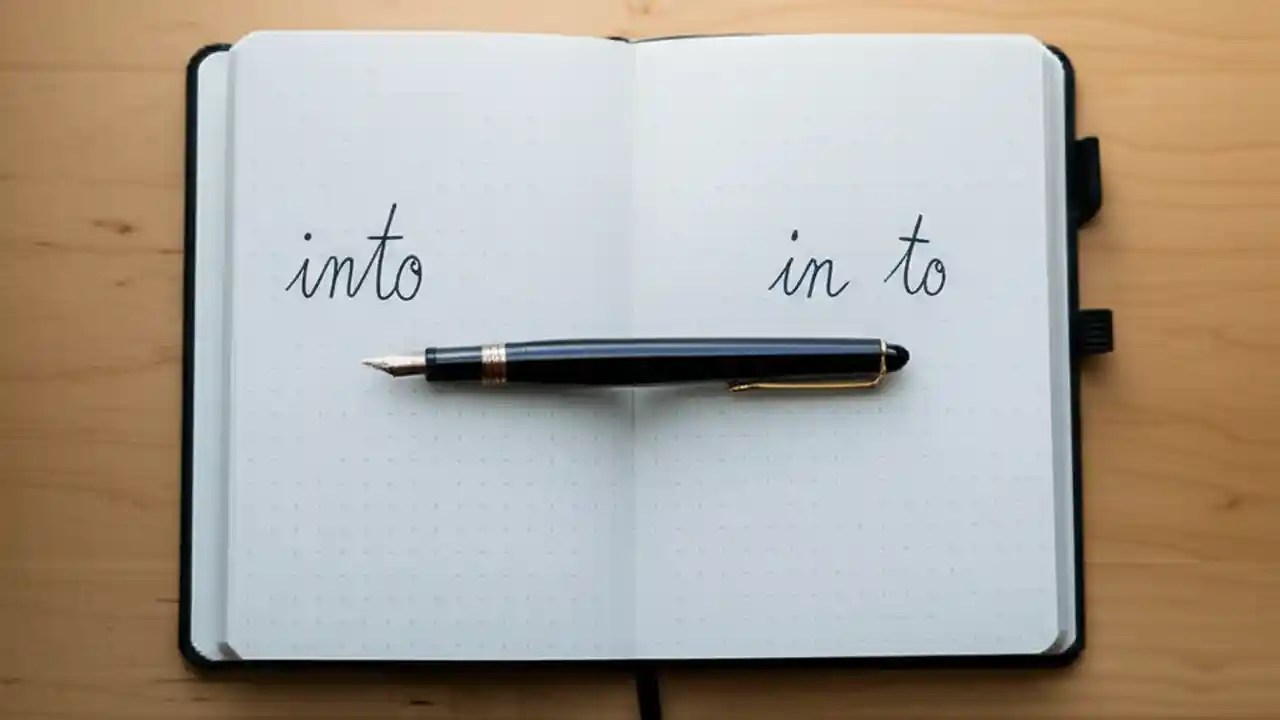 into
in to